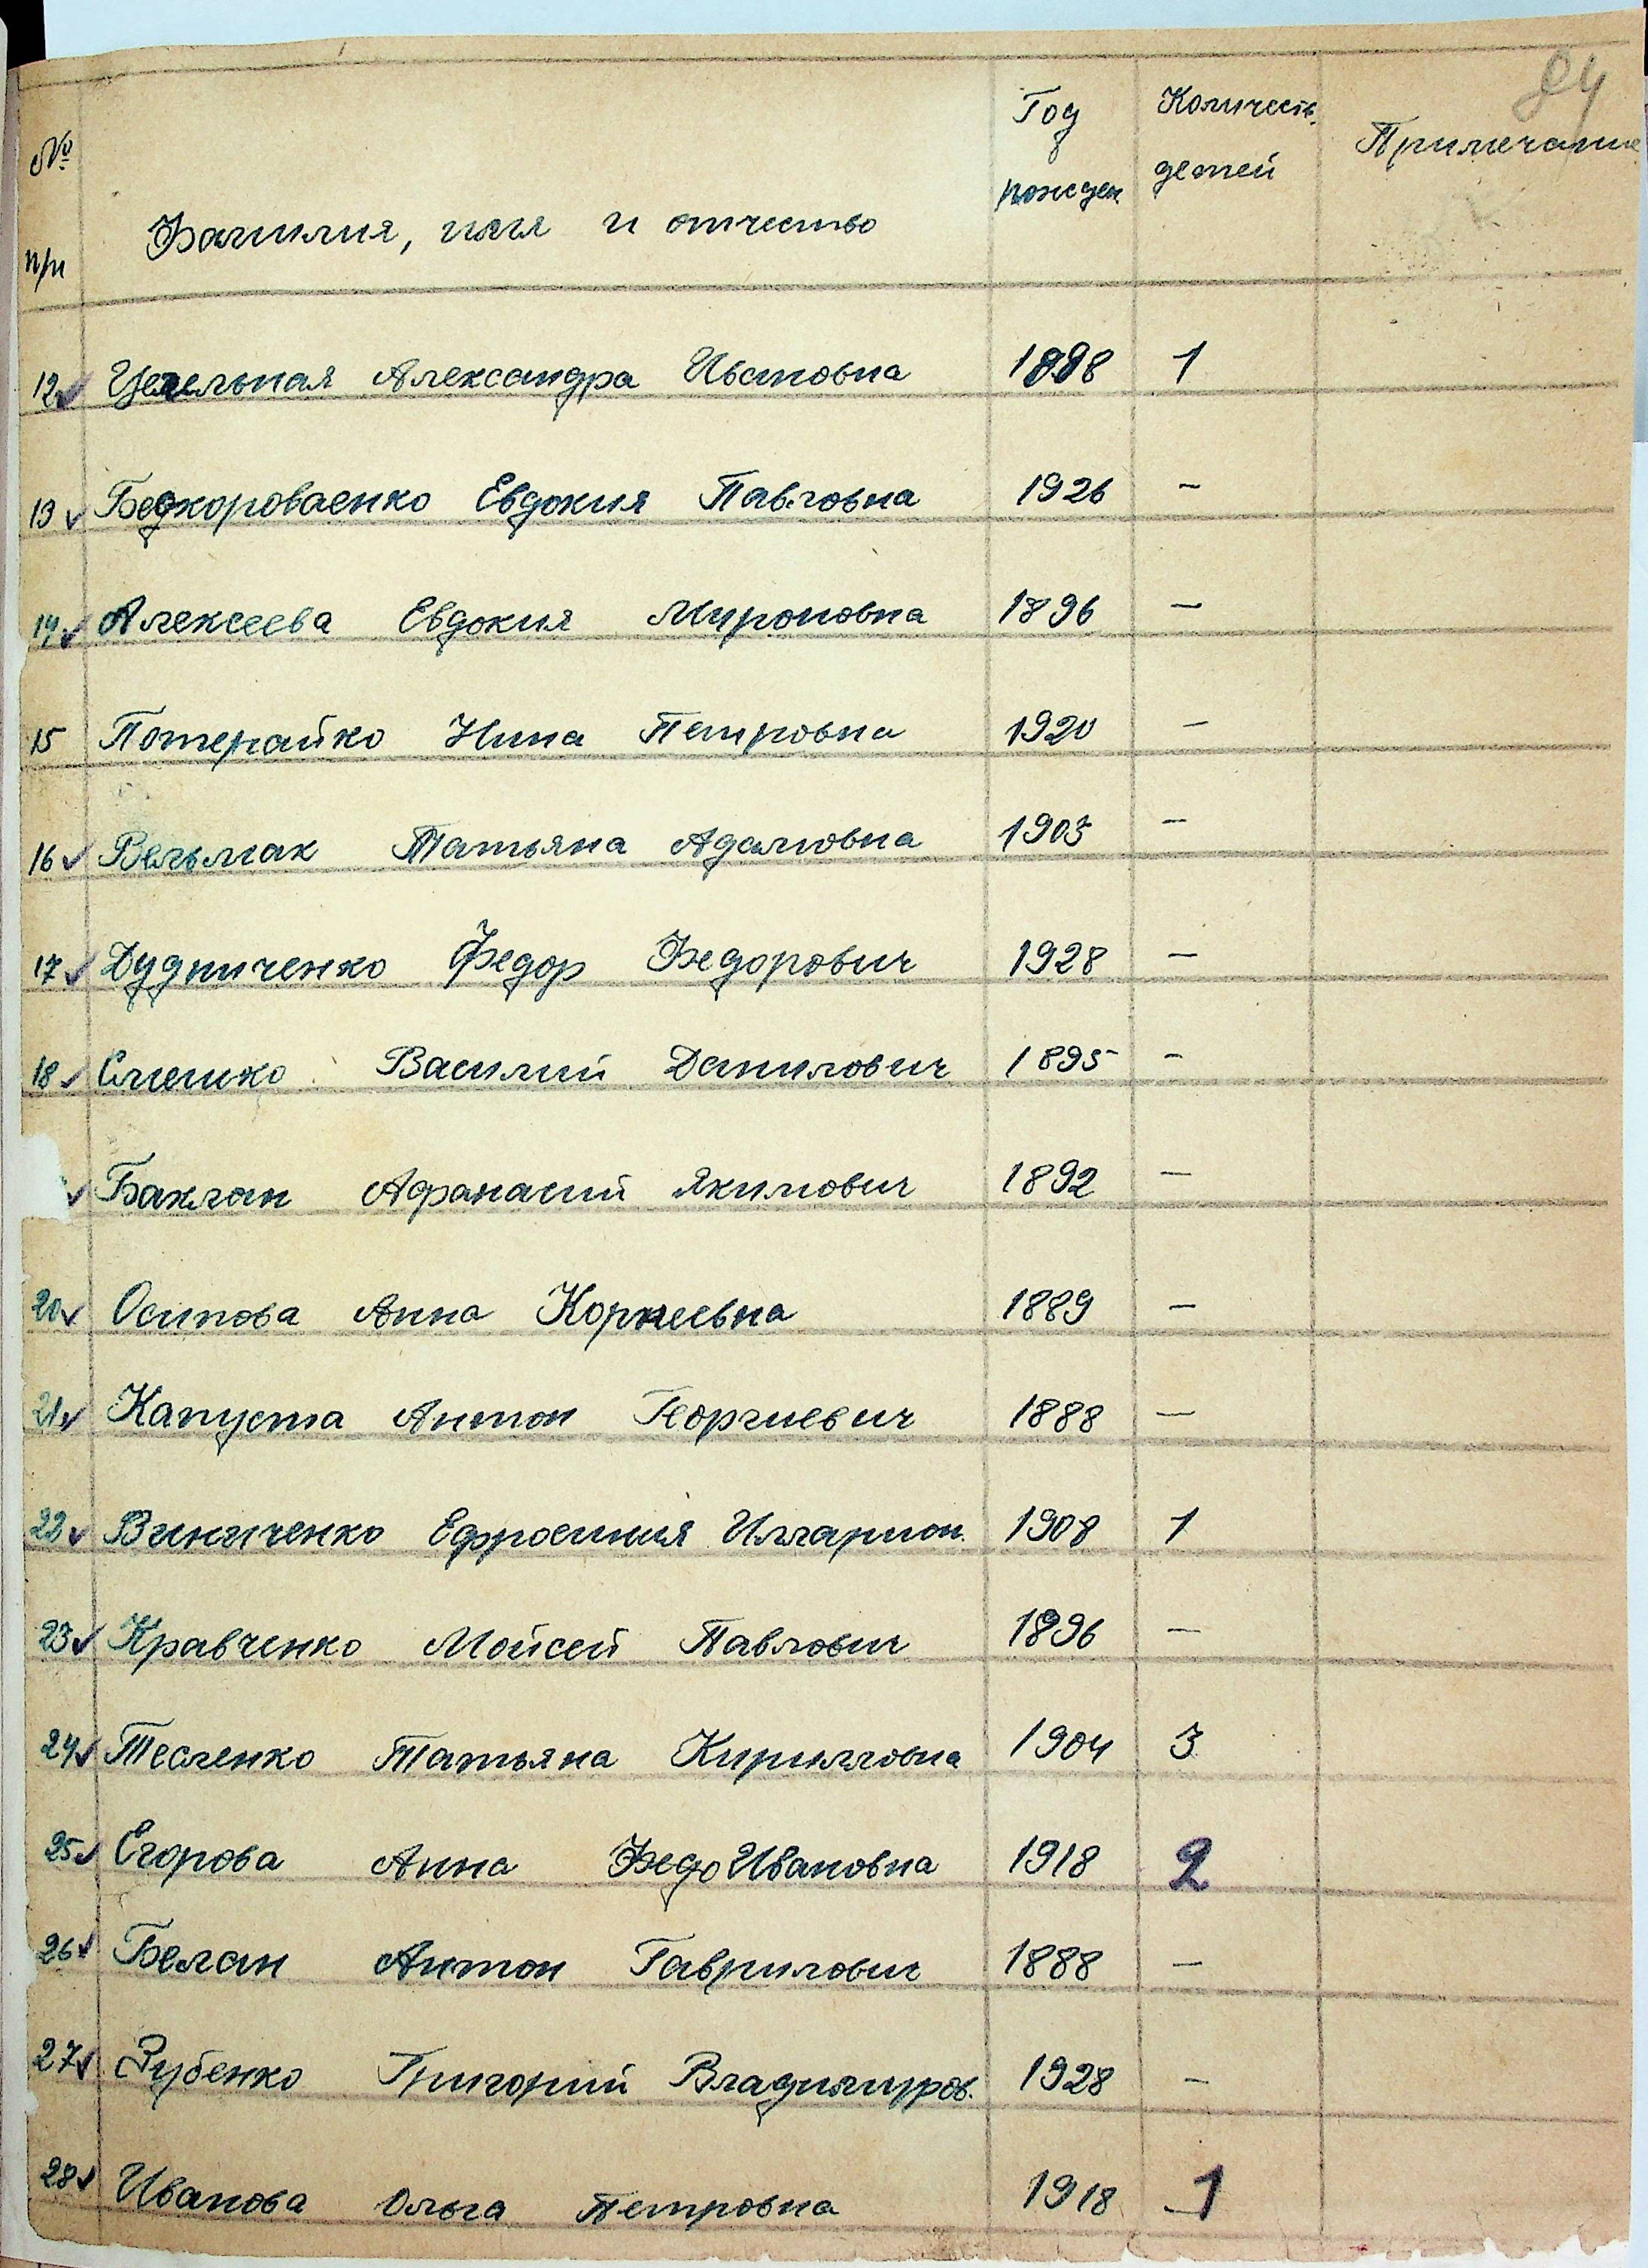 84
№ п/п Фамилия, имя и отчество Год рожден. Количеств. детей Примечание
12 Цегельная Александра Ивановна 1898 1
13 Бедкороваенко Евдокия Павловна 1926 –
14 Алексеева Евдокия Мироновна 1896 –
15 Потерайко Нина Петровна 1920 –
16 Вельмак Татьяна Адамовна 1903 –
17 Дудниченко Федор Федорович 1928 –
18 Слешко Василий Данилович 1895 –
Баклан Афанасий Якимович 1892 –
20 Осипова Анна Корнеевна 1889 –
21 Капуста Антон Георгиевич 1888 –
22 Виниченко Ефросиния Илларион. 1908 1
23 Кравченко Мойсей Павлович 1896 –
24 Тесленко Татьяна Кирилловна 1904 3
25 Егорова Анна Федо Ивановна 1918 2
26 Белан Антон Гаврилович 1888 –
27 Зубенко Григорий Владимиров. 1928 –
28 Иванова Ольга Петровна 1918 1